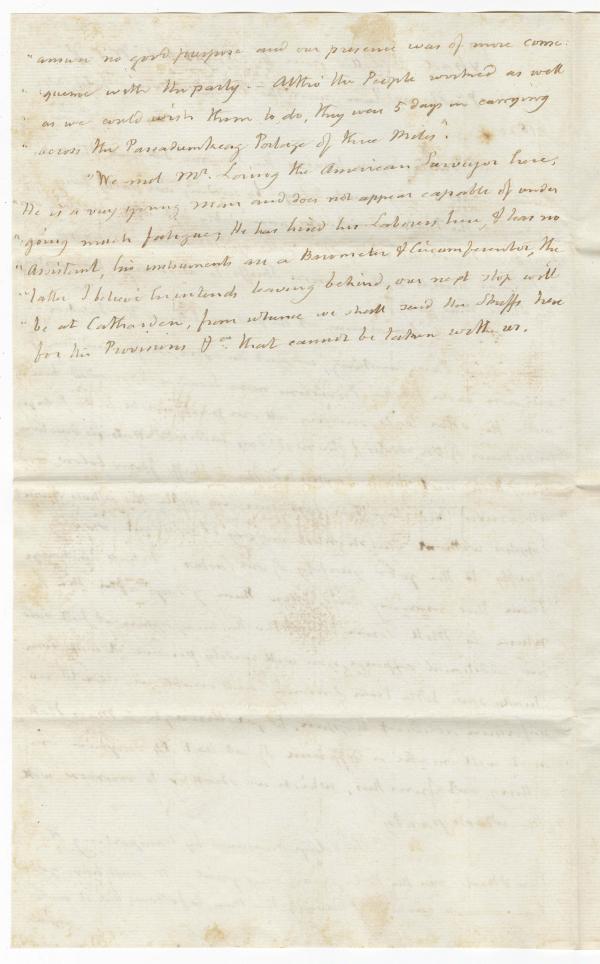 " answer no good purpose and our presence was of more conse-
" quence with the party. — Altho' the People worked as well
" as we could wish them to do, they were 5 days in carrying
" across the Passadumkeag Portage of three Miles".
" We met Mr. Loring the American Surveyor here,
" He is a very young man and does not appear capable of under
" going much fatigue; He has hired his Laborers here, & has no
" Assistant, his instruments are a Barometer & Circumferentor, the
" latter I believe he intends leaving behind, our next stop will
" be at Catharden, from whence we shall send the Skiffs here
for his Provisions &ca. that cannot be taken with us.